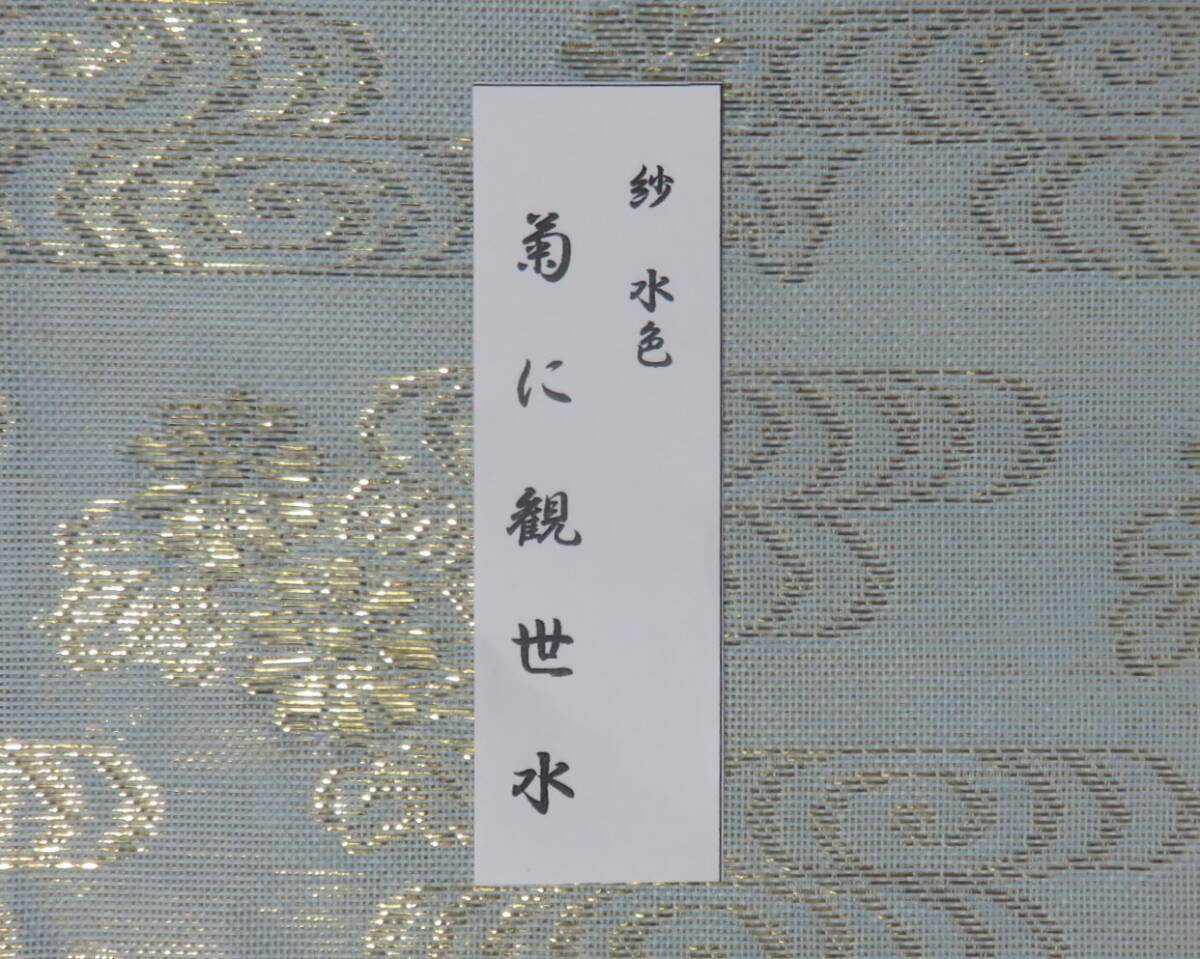 紗 水色
菊に観世水